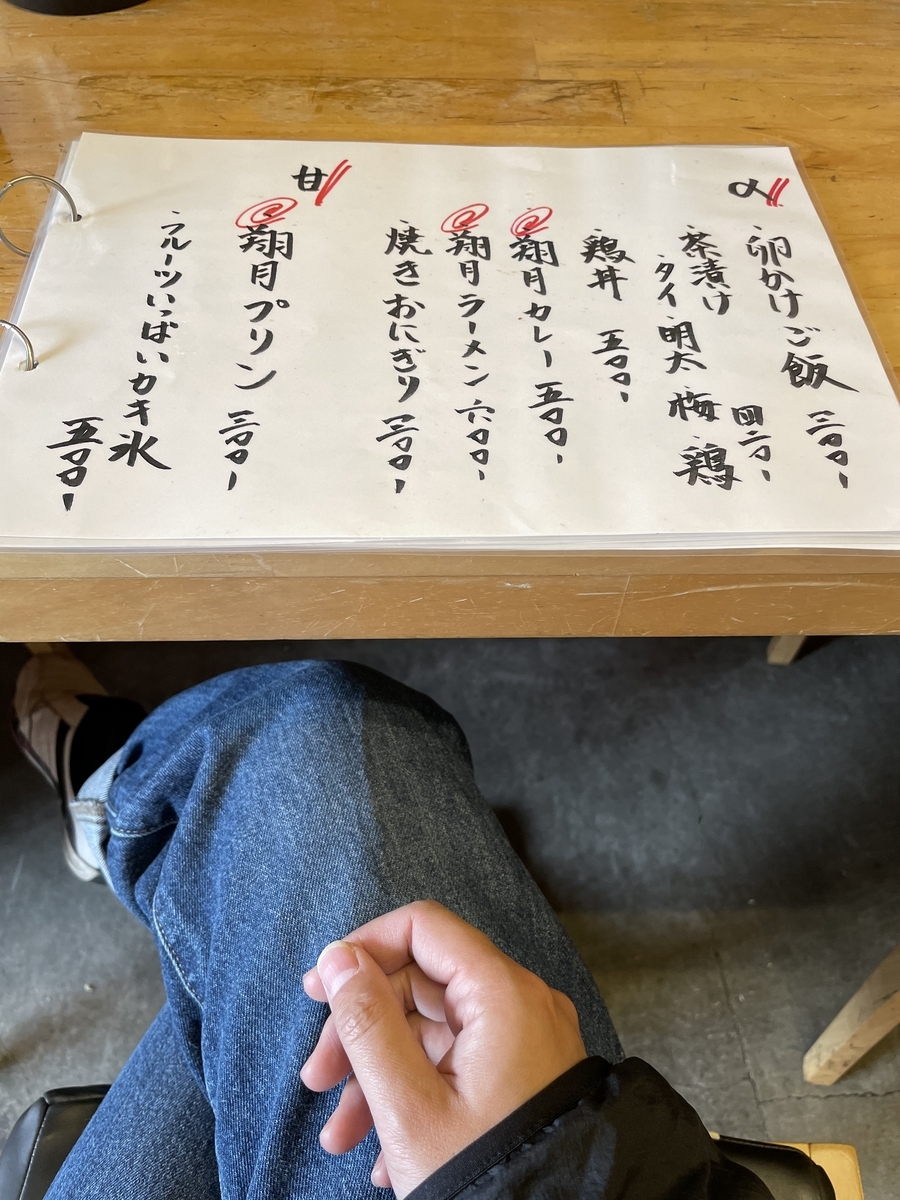 〆
・卵かけご飯 三〇〇-
・茶漬け 四二〇-
タイ・明太・梅・鶏
・鶏丼 五〇〇-
・翔月カレー 五〇〇-
・翔月ラーメン 六〇〇-
・焼きおにぎり 三〇〇-
甘
・翔月プリン 三〇〇-
・フルーツいっぱいカキ氷
五〇〇-